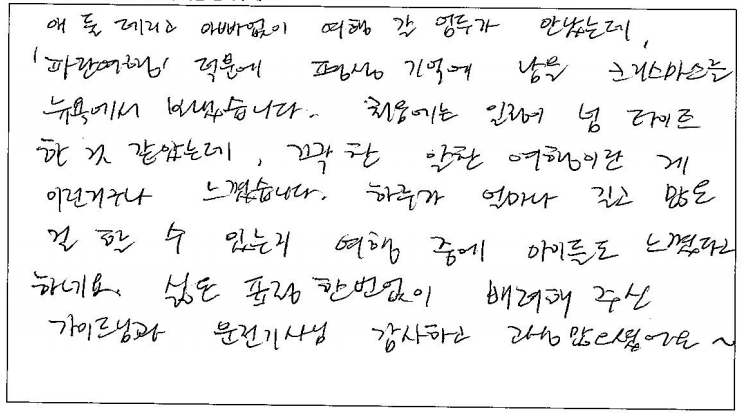 애 둘 데리고 아빠없이 여행 갈 엄두가 안났는데,
'파란여행' 덕분에 평생 기억에 남을 크리스마스를
뉴욕에서 보냈습니다. 처음에는 일정이 넘 타이트
한 것 같았는데, 꽉 찬 알찬 여행이란 게
이런거구나 느꼈습니다. 하루가 얼마나 길고 많은
걸 할 수 있는지 여행 중에 아이들도 느꼈다고
하네요. 싫은 표정 한번없이 배려해 주신
가이드님과 운전기사님 감사하고 고생많으셨어요~